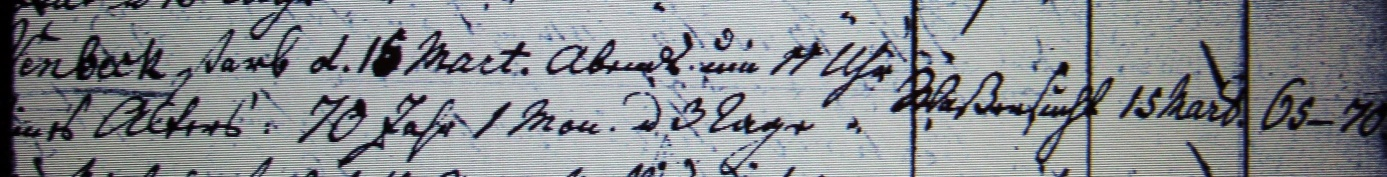 enbeck starb d. 15 Mart. Abends um 11 Uhr
ines Alters: 70 Jahr 1 Mon. u 3 Tage. Waßersucht 15 Mart. 65–70